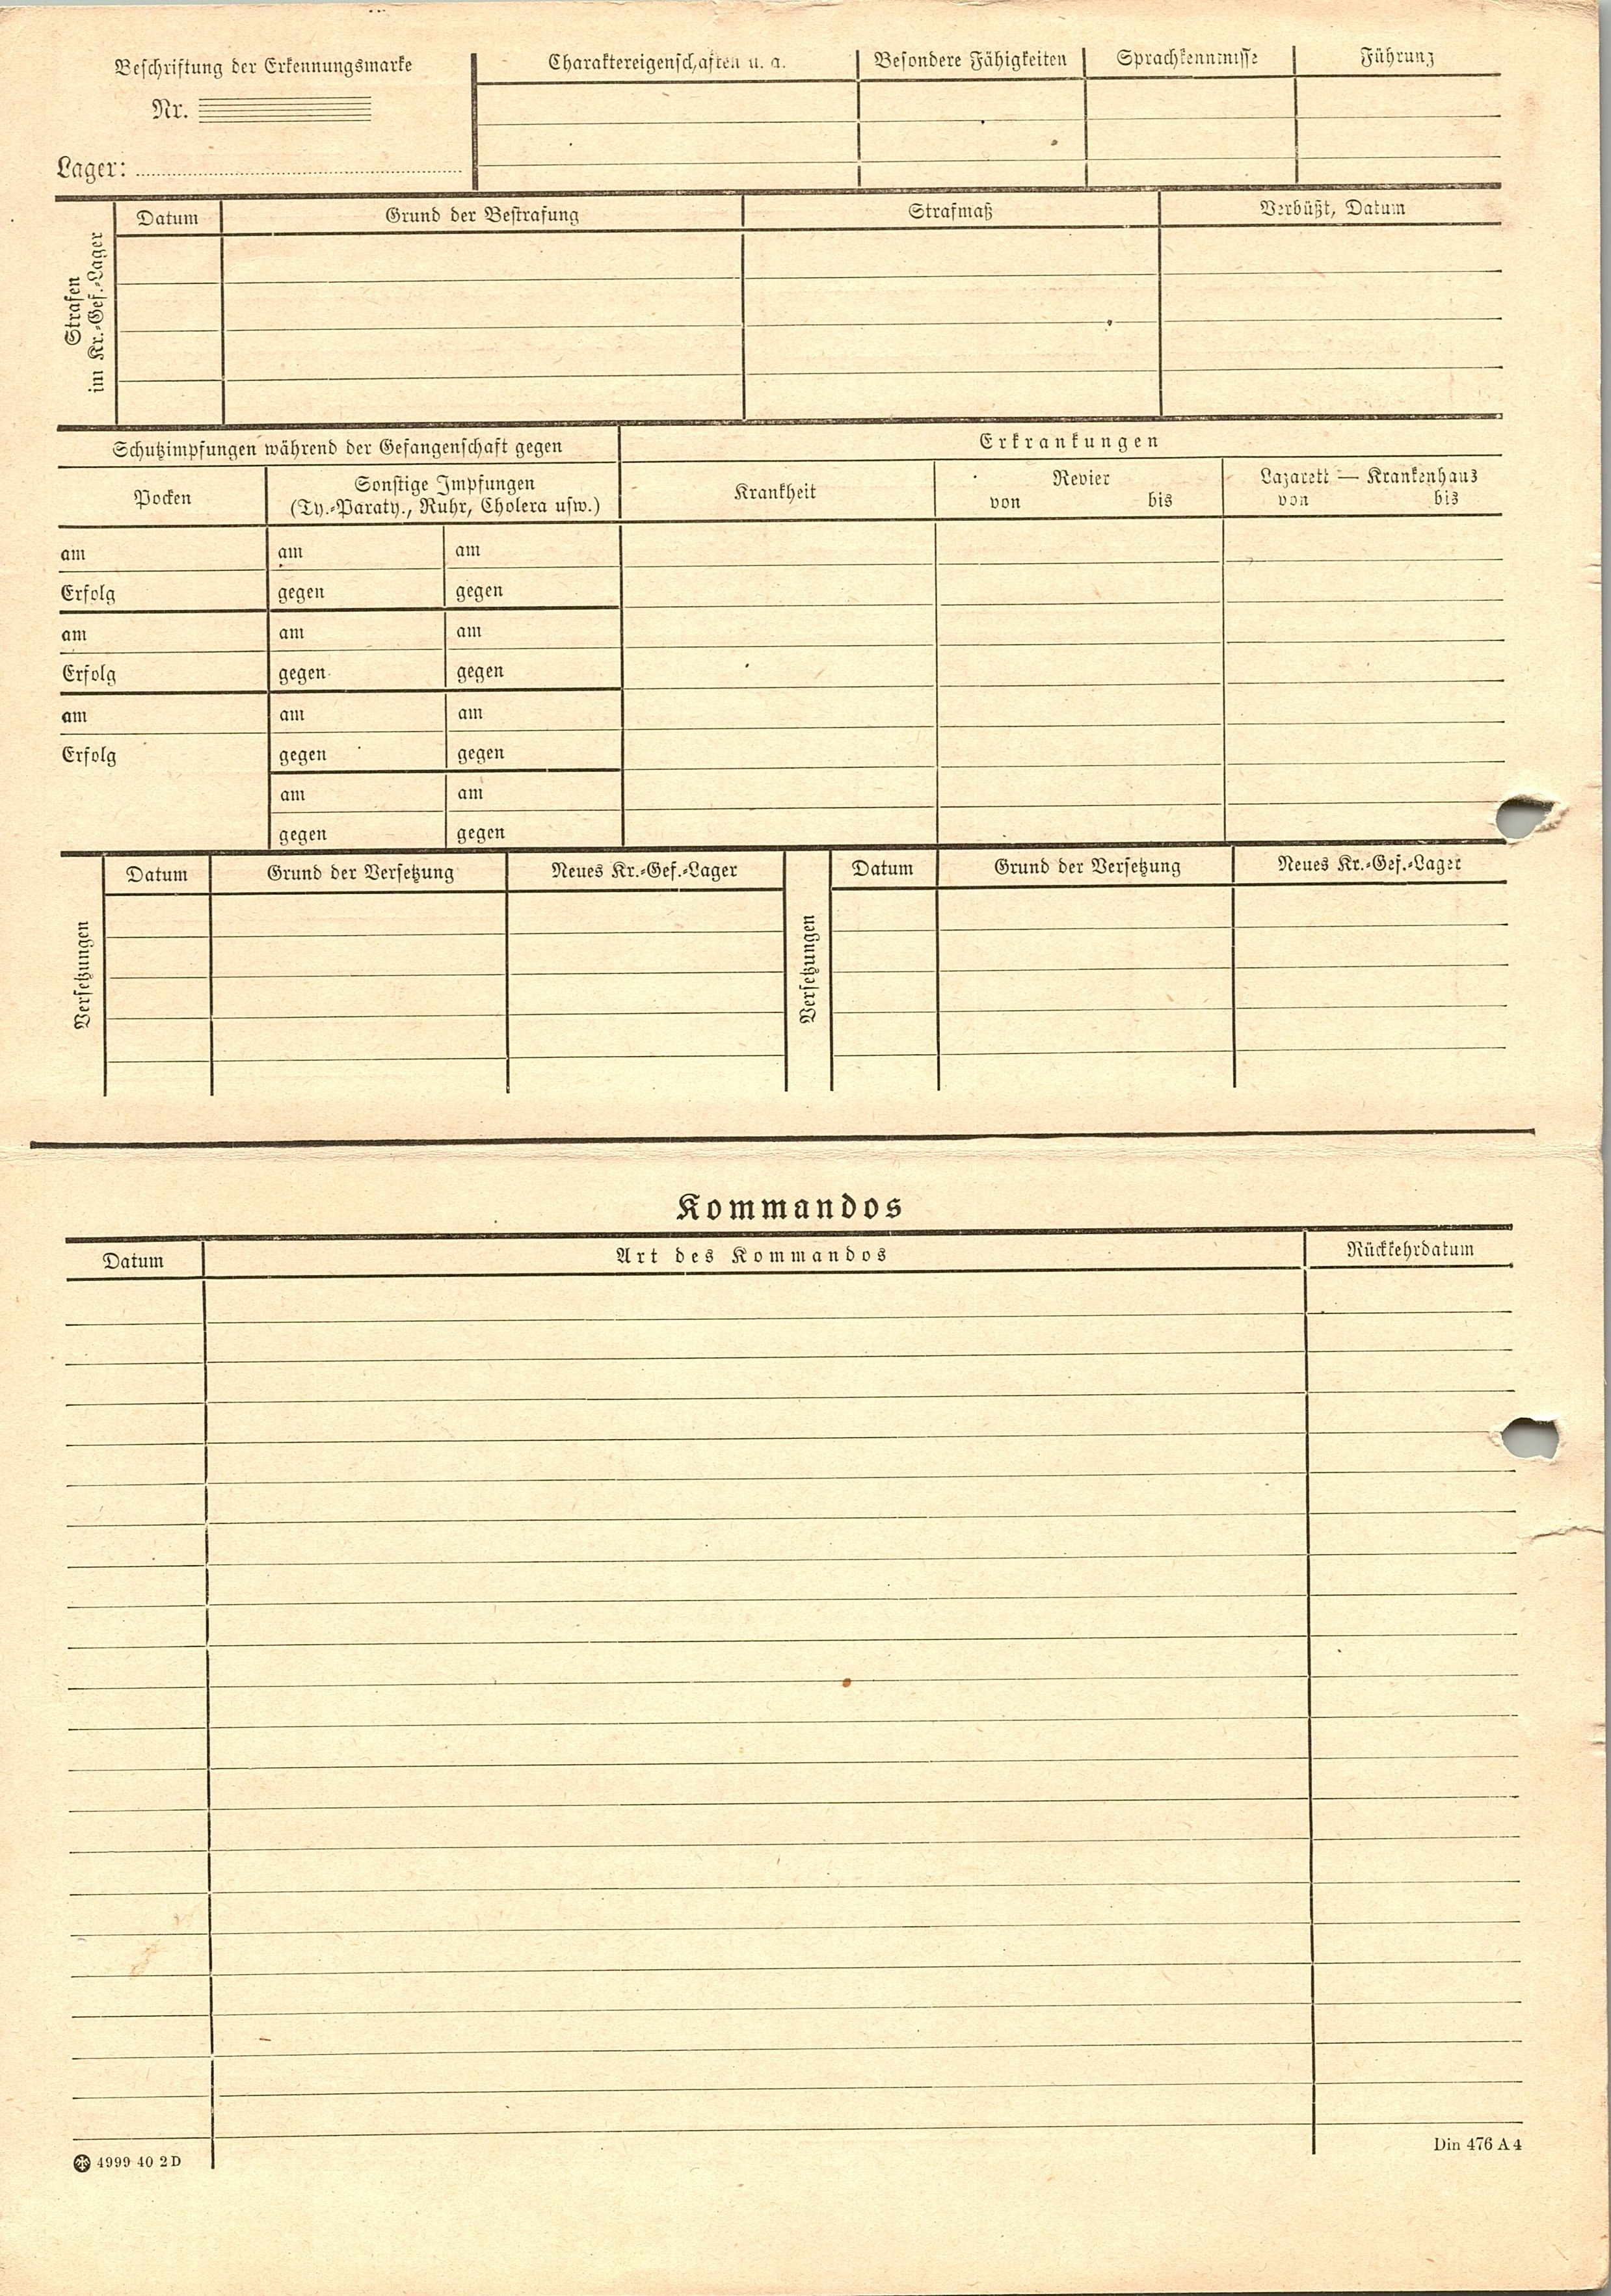 Beschriftung der Erkennungsmarke
Nr.
Lager:
Charaktereigenschaften u. a.
Besondere Fähigkeiten
Sprachkenntnisse
Führung
Strafen
im Kr.-Gef.-Lager
Datum
Grund der Bestrafung
Strafmaß
Verbüßt, Datum
Schutzimpfungen während der Gefangenschaft gegen
Erkrankungen
Pocken
Sonstige Impfungen
(Ty.-Paraty., Ruhr, Cholera usw.)
Krankheit
Revier
von bis
Lazarett — Krankenhaus
von bis
am am am
Erfolg gegen gegen
am am am
Erfolg gegen gegen
am am am
Erfolg gegen gegen
am am
gegen gegen
Versetzungen
Datum
Grund der Versetzung
Neues Kr.-Gef.-Lager
Versetzungen
Datum
Grund der Versetzung
Neues Kr.-Gef.-Lager
Kommandos
Datum
Art des Kommandos
Rückkehrdatum
4999 40 2 D
Din 476 A 4